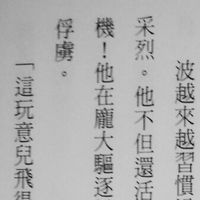 波越來越習慣
采烈。他不但還活
機！他在龐大驅逐
俘虜。
「這玩意兒飛得